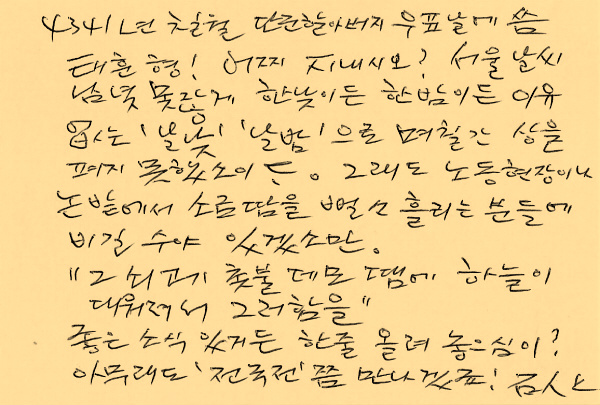 4341년 칠월 단군할아버지 우표날에 씀
태훈 형! 어찌 지내시오? 서울 날씨
남녘 못잖게 한낮이든 한밤이든 이유
없는 '날낮' '날밤'으로 며칠간 상을
펴지 못했소이다. 그래도 노동현장이나
논밭에서 소금땀을 뻘뻘 흘리는 분들에
비길 수야 있겠소만.
"그 쇠고기 촛불 데모 땜에 하늘이
더워져서 그러함을"
좋은 소식 있거든 한줄 올려 놓으심이?
아무래도 '전국전'쯤 만나겠죠!